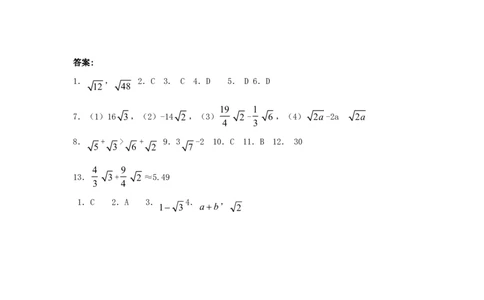 答案:
1. √12, √48 2. C 3. C 4. D 5. D 6. D
7. (1)16√3, (2)-14√2, (3) 19/4 √2 - 1/3 √6, (4) √2a-2a √2a
8. √5+√3>√6+√2 9. 3√7-2 10. C 11. B 12. 30
13. 4/3 √3+ 9/4 √2≈5.49
1. C 2. A 3. 1-√3 4. a+b, √2